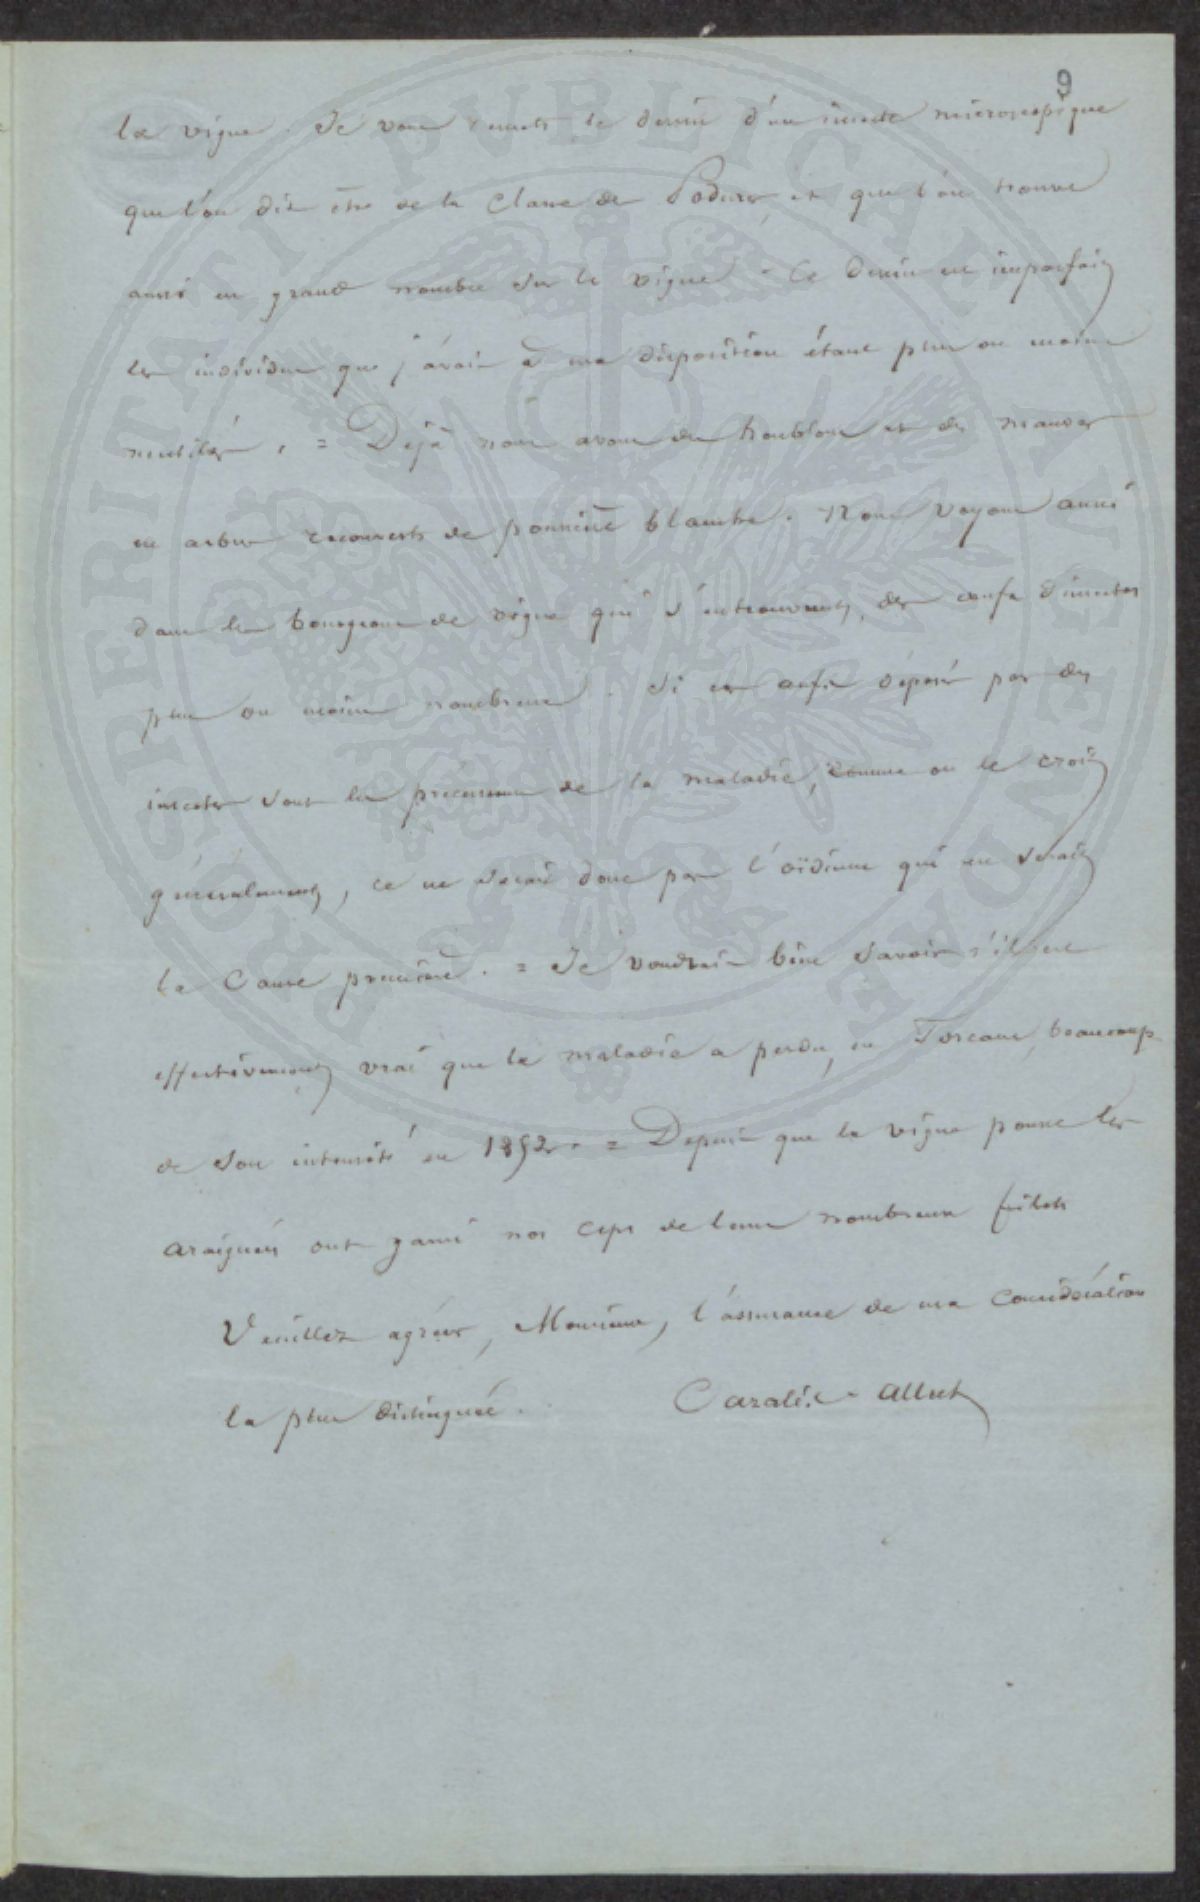 9
la vigne. Je vous remets le dessin d'un insecte microscopique
que l'on dit être de la classe des Podures, et que l'on trouve
aussi en grand nombre sur la vigne. Ce dessin est imparfait
les individus que j'avais à ma disposition étant plus ou moins
mutilés. = Déjà nous avons des houblons et des mauves
en arbre recouverts de poussière blanche. Nous voyons aussi
dans les bourgeons de vigne qui s'entrouvrent, des œufs d'insectes
plus ou moins nombreux. Si ces œufs déposés par des
insectes sont les précurseurs de la maladie, comme on le croit
généralement, ce ne serait donc pas l'oïdium qui en serait
la cause première. = Je voudrais bien savoir s'il est
effectivement vrai que la maladie a perdu, en Toscane, beaucoup
de son intensité en 1852. = Depuis que la vigne pousse les
araignées ont garni nos ceps de leurs nombreux filets
Veuillez agréer, Monsieur, l'assurance de ma considération
la plus distinguée. Cazalis-Allut
PROSPERITATI PUBLICAE AVVEDVTAE